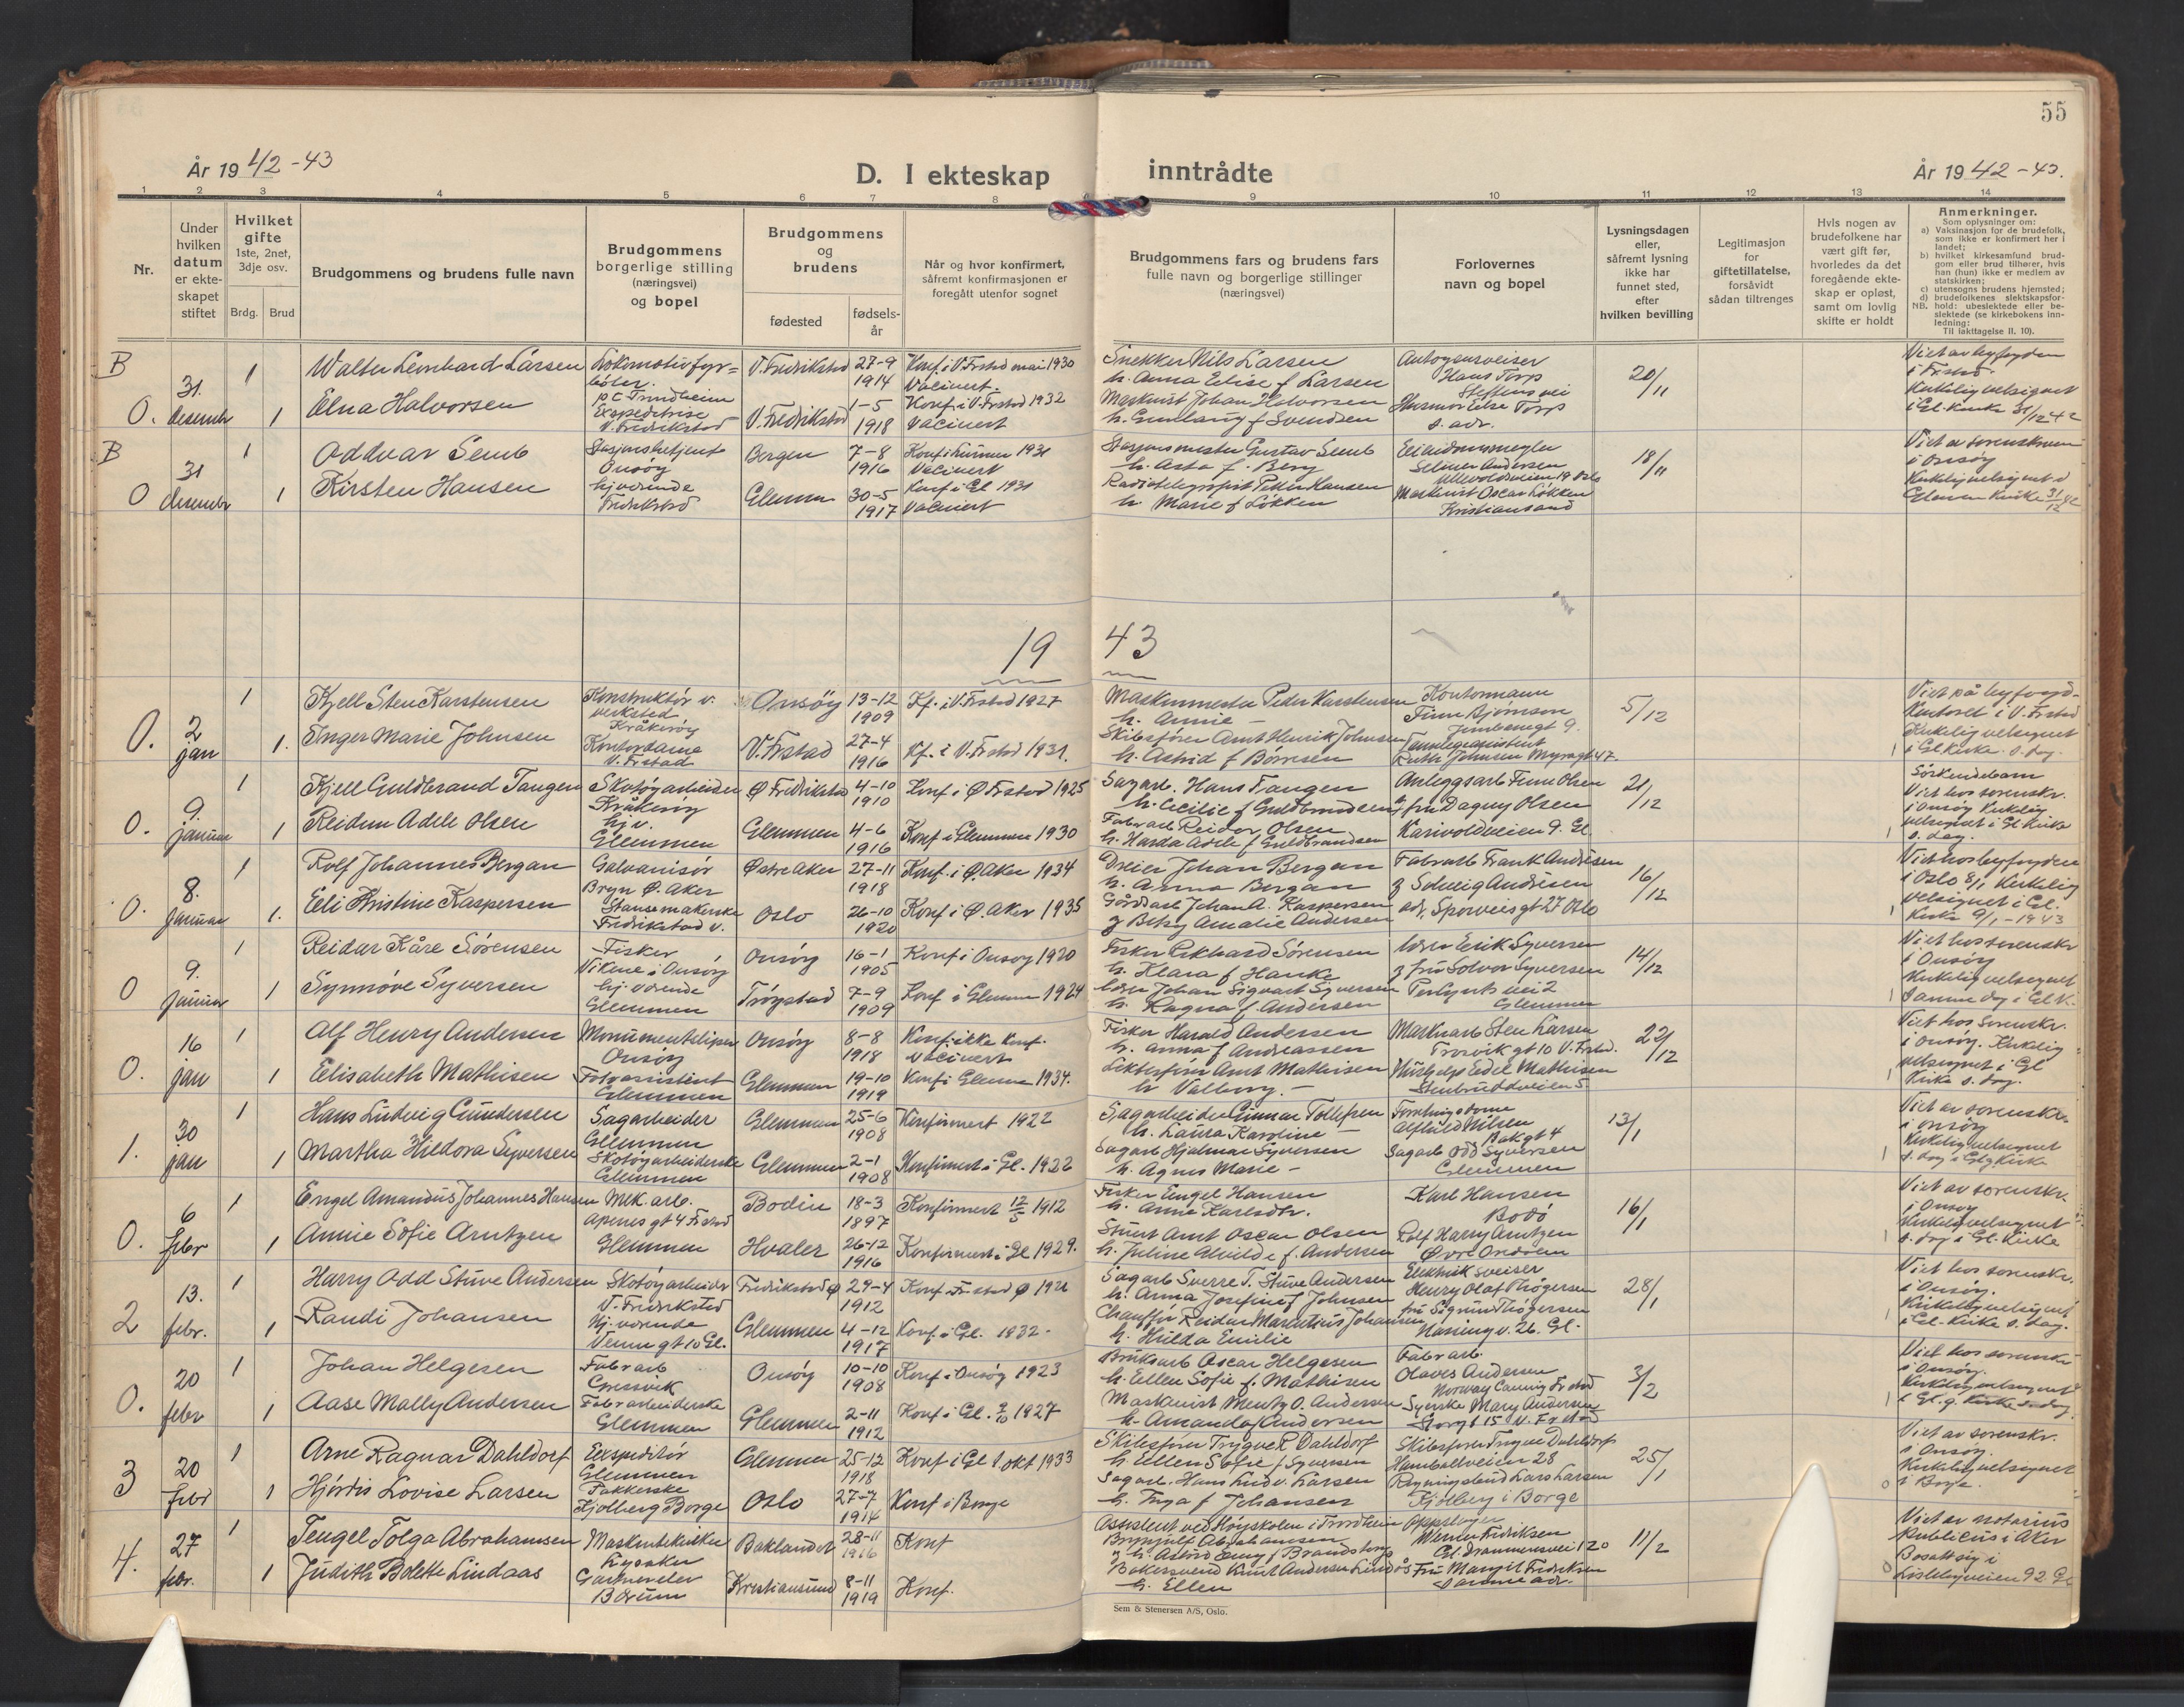 55
År 1942-43
D. I ekteskap inntrådte
År 1942-43.
1 2 3 4 5 6 7 8 9 10 11 12 13 14
Nr.
Under hvilken datum er ekteskapet stiftet
Hvilket gifte 1ste, 2net, 3dje osv.
Brdg. Brud
Brudgommens og brudens fulle navn
Brudgommens borgerlige stilling (næringsvei) og bopel
Brudgommens og brudens
fødested
fødselsår
Når og hvor konfirmert, såfremt konfirmasjonen er foregått utenfor sognet
Brudgommens fars og brudens fars fulle navn og borgerlige stillinger (næringsvei)
Forlovernes navn og bopel
Lysningsdagen eller, såfremt lysning ikke har funnet sted, efter hvilken bevilling
Legitimasjon for giftetillatelse, forsåvidt sådan tiltrenges
Hvis nogen av brudefolkene har vært gift før, hvorledes da det foregående ekteskap er opløst, samt om lovlig skifte er holdt
Anmerkninger.
Som oplysninger om:
a) Vaksinasjon for de brudefolk, som ikke er konfirmert her i landet;
b) hvilket kirkesamfund brudgom eller brud tilhører, hvis han (hun) ikke er medlem av statskirken;
c) utensogns brudens hjemsted;
d) brudefolkenes slektskapsforhold: ubeslektede eller beslektede (se kirkebokens innledning:
NB. Til iakttagelse II. 10).
B
O. 31. desember 1
Walter Leonhard Larsen
Lokomotivfyrbøter. p.t. Trondheim
V. Fredrikstad 27-9 1914
Konf. i V. Frstad mai 1930 Vacinert.
Snekker Nils Larsen
h. Anna Elise f. Larsen
Autogensveiser Hans Torp Steffens vei
20/11
Viet av byfogden i Frstad. Kirkelig velsignet i Gl. kirke 31/12 42
1 Elna Halvorsen
Ekspeditrise V. Fredrikstad
V. Fredrikstad 1-5 1918
Konf. i V. Frstad 1932 Vacinert
Maskinist Johan Halvorsen
h. Gunlaug f. Svendsen
Husmor Else Torp s. adr.
B
O 31 desember 1
Oddvar Semb
Stasjonsbetjent Onsøy
Bergen 7-8 1916
Konf. i Hurum 1931 Vacinert
Stasjonsmester Gustav Semb
h. Asta f. Berg
Eiendomsmegler Selmer Andersen Ullevoldsveien 19 Oslo
18/11
Viet av sorenskriveren i Onsøy Kirkelig velsignet i Glemmen Kirke 31/12 42
1 Kirsten Hansen
hjv&aelig;rende Fredrikstad
Glemmen 30-5 1917
Konf. i Gl 1931 Vacinert
Radiotelegrafist Petter Hansen
h. Marie f. Løkken
Maskinist Oscar Løkken Kristiansand
1943
O. 2 jan 1
Kjell Sten Karstensen
Konstruktør v. verksted. Kråkerøy
Onsøy 13-12 1909
Kf. i V. Frstad 1927
Maskinmester Peder Karstensen
h. Annie -
Kontormann Finn Bjørnson
5/12
Viet på byfogdkontoret i V. Frstad Kirkelig velsignet i Gl. Kirke s. dag.
1. Inger Marie Johnsen
Kontordame V. Frstad
V. Frstad 27-4 1916
Kf. i V. Frstad 1931.
Skibsfører Arnt Henrik Johnsen
h. Astrid f. Børresen
Tannlegeassistent Ruth Johnsen Myragt 47
O. 9. januar 1
Kjell Guldbrand Tangen
Skotøyarbeider Kråkerøy
Ø Fredrikstad 4-10 1910
Konf. i Ø Frstad 1925
Sagarb. Hans Tangen
h. Cecilie f. Guldbrandsen
Anleggsarb Finn Olsen & fru Dagny Olsen Karivoldveien 9. Gl.
21/12
Söskendebarn Viet hos sorenskr. i Onsøy Kirkelig velsignet i Gl Kirke s. dag.
1 Reidun Adele Olsen
hj.v. Glemmen
Glemmen 4-6 1916
Konf i Glemmen 1930
Fabrarb Reidar Olsen
h. Harda Adele f. Guldbrandsen
O. 8. januar 1
Rolf Johannes Bergan
Galvanisør Bryn Ø. Aker
Østre Aker 27-11 1918
Konf. i Ø. Aker 1934
Dreier Johan Bergan
h. Anna Bergan
Fabrarb Frank Andrèsen & Solveig Andrèsen adr. Sporveisgt 27 Oslo
16/12
Viet hos byfogden i Oslo 8/1 Kirkelig velsignet i Gl. Kirke 9/1-1943
1. Elli Kristine Kaspersen
Stansemakerske Fredrikstad v.
Oslo 26-10 1920
Konf. i Ø. Aker 1935
Gårdsarb Johan A. Kaspersen
& Betsy Amalie Andersen
O 9. januar 1
Reidar Kåre Sørensen
Fisker Vikene i Onsøy
Onsøy 16-1 1905
Konf i Onsøy 1920
Fisker Rikhard Sørensen
h. Klara f Hanke
Erik Syversen & fru Solvor Syversen
14/12
Viet hos sorenskr i Onsøy Kirkelig velsignet Samme dag i Gl. K.
1 Synnöve Syversen
hj. v&aelig;rende Glemmen
Trøgstad 7-9 1909
Konf i Glemmen 1924
Johan Sigvart Syversen
h. Ragna f. Andersen
Per Gynts vei 2 Glemmen
O. 16 jan 1
Alf Henry Andersen
Monumentsliper Onsøy
Onsøy 8-8 1918
Konf. ikke Konf. Vacinert
Fisker Harald Andersen
h. Anna f Andreassen
Maskinarb Sten Larsen Trosvikgt 10 V. Frstad.
22/12
Viet hos Sorenskr. i Onsøy. Kirkelig velsignet i Gl Kirke s. dag.
1 Elisabeth Mathisen
Fotoassistent Glemmen
Glemmen 19-10 1919
Konf i Glemme 1934.
Arnt Mathisen
h Valborg -
Hushjelp Edel Mathisen Stenbruddveien 5
1. 30 jan 1
Hans Ludvig Gundersen
Sagarbeider Glemmen
Glemmen 25-6 1908
Konfirmert 1922
Sagarbeider Gunnar Tollefsen
h. Laura Karoline -
Forretningsdame Alfhild Nilsen Bakgt 4
13/1
Viet av sorenskr. i Onsøy Kirkelig velsignet s. dag i Gl g Kirke
1 Martha Hildora Syversen
Skotøyarbeiderske Glemmen
Glemmen 2-1 1908
Konfirmert i Gl. 1922
Sagarb Hjalmar Syversen
h. Agnes Marie -
Sagarb Odd Syversen Glemmen
O. 6 febr 1
Engel Amandus Johannes Hansen
Mek. arb. Apenesgt 4 Frstad
Bodin 18-3 1897
Konfirmert 12/5 1912
Fisker Engel Hansen
h. Anna Karlsdtr.
Karl Hansen Bodö
16/1
Viet av sorenskr. i Onsøy Kirkelig velsignet s. dag i Gl. Kirke
1 Annie Sofie Arntzen
Glemmen
Hvaler 26-12 1916
Konfirmert i Gl 1929.
Stuert Arnt Oscar Olsen
h. Juline Alvilde f. Andersen
Rolf Harry Arntzen
2 13. febr. 1
Harry Odd Stuve Andersen
Skotøyarbeider V. Fredrikstad
Fredrikstad Ø 29-4 1912
Konf. Frstad Ø 1926
Sagarb Sverre T. Stuve Andersen
h. Anna Josefine f Johnsen
Elektrik sveiser Henry Olaf Thögersen fru Sigrun Thögersen
28/1
Viet hos sorenskr. i Onsøy. Kirkelig velsignet i Gl. Kirke s. dag.
1 Randi Johansen
Hj. v&aelig;rende Venngt 10 Gl.
Glemmen 4-12 1917
Konf. i Gl. 1932.
Chauffør Reidar Marentius Johansen
h. Hilda Emilie
O. 20 febr 1
Johan Helgesen
Fabrarb Gressvik
Onsøy 10-10 1908
Konf. i Onsøy 1923
Bruksarb Oscar Helgesen
h. Ellen Sofie f. Mathisen
Fabrarb. Olaves Andersen Norway Caning Frstad
3/2
Viet hos sorenskr i Onsøy. Kirkelig velsignet i Gl. g. Kirke s. dag
1 Aase Mally Andersen
Fabrarbeiderske Glemmen
Glemmen 2-11 1912
Konf i Gl. 9/10 1927
Maskinist Mentz O. Andersen
h. Amanda f Andersen
Syerske Mary Andersen Storgt 15 V. Frstad
3 20 febr 1
Arne Ragnar Dahldorf
Ekspeditör Glemmen
Glemmen 25-12 1918
Konf i Gl 1 okt 1933
Skibsförer Trygve R Dahldorf
h. Ellen Sofie f Syversen
Skibsförer Trygve Dahldorf 28
25/1
Viet av sorenskr. i Onsøy. Kirkelig velsignet i Borge.
1 Hjördis Lovise Larsen
Pakkerske Kjølberg Borge
Oslo 27-7 1914
Konf i Borge
Sagarb. Hans Ludv. Larsen
h. Inga f Johansen
Lars Larsen Kjølberg i Borge
4. 27 febr. 1
Tengel Tolga Abrahamsen
Maskintekniker Lysaker
Baklandet 28-11 1916
Konf
Assistent ved Høyskolen i Trondheim Brynjulf Abrahamsen
& h. Astrid Jenny f Brandstorp
Oppslager Werner Fredriksen Gl. Drammensvei 120
11/2
Viet av notarius Publicus i Aker Bosatt sig i Lislebyveien 92. Gl
1 Judith Bolette Lindaas
Gartnerelev B&aelig;rum
Kristiansund 8-11 1919
Konf.
Bakersvend Knut Andersen Lindås
h. Ellen
Fru Margit Fredriksen Samme adr.
Sem & Stenersen A/S, Oslo.